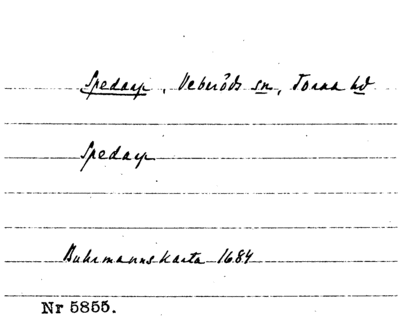 Spedarp, Veberöds sn, Torna hd
Spedarp
Buhrmanns karta 1684
Nr 5855.